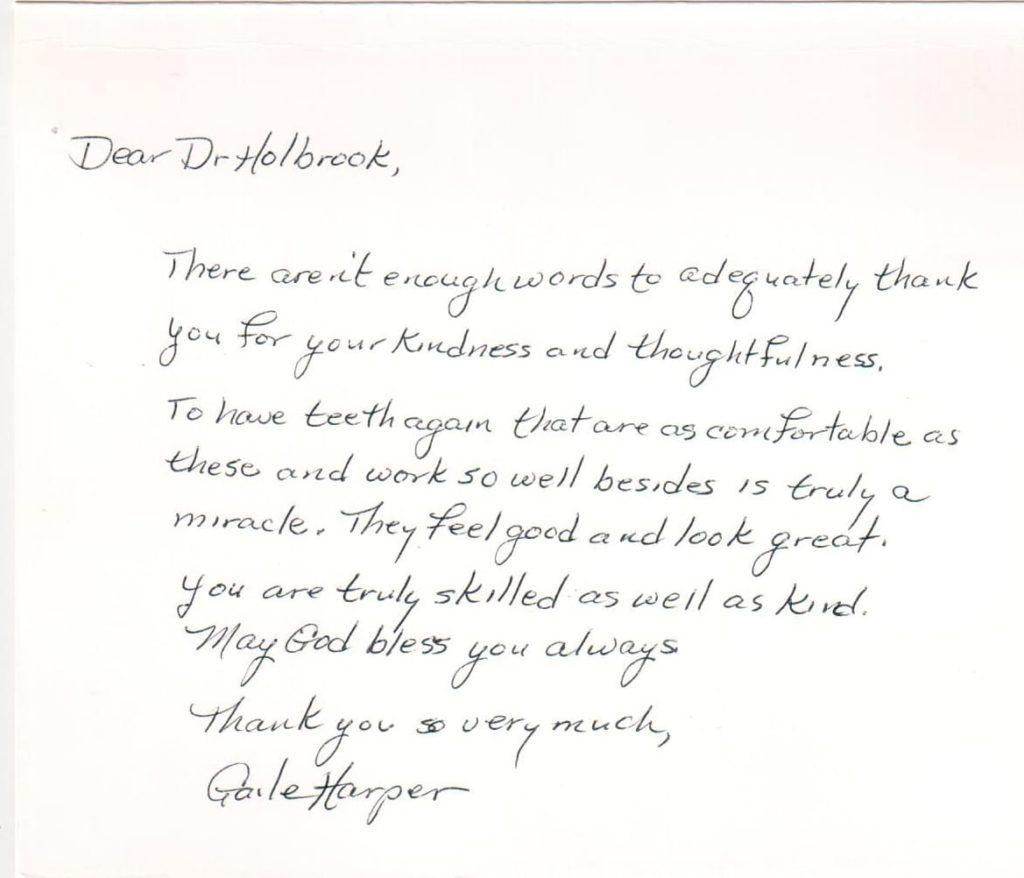 Dear Dr Holbrook,
There aren't enough words to adequately thank
you for your kindness and thoughtfulness.
To have teeth again that are as comfortable as
these and work so well besides is truly a
miracle. They feel good and look great.
You are truly skilled as well as kind.
May God bless you always
Thank you so very much,
Gaile Harper